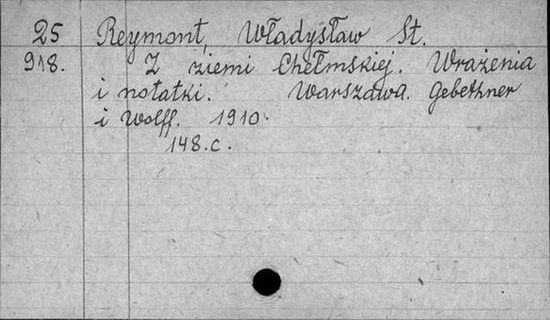 25 Reymont, Władysław St.
918. Z ziemi Chełmskiej. Wrażenia
i notatki. Warszawa. Gebethner
i Wolff. 1910.
148.c.